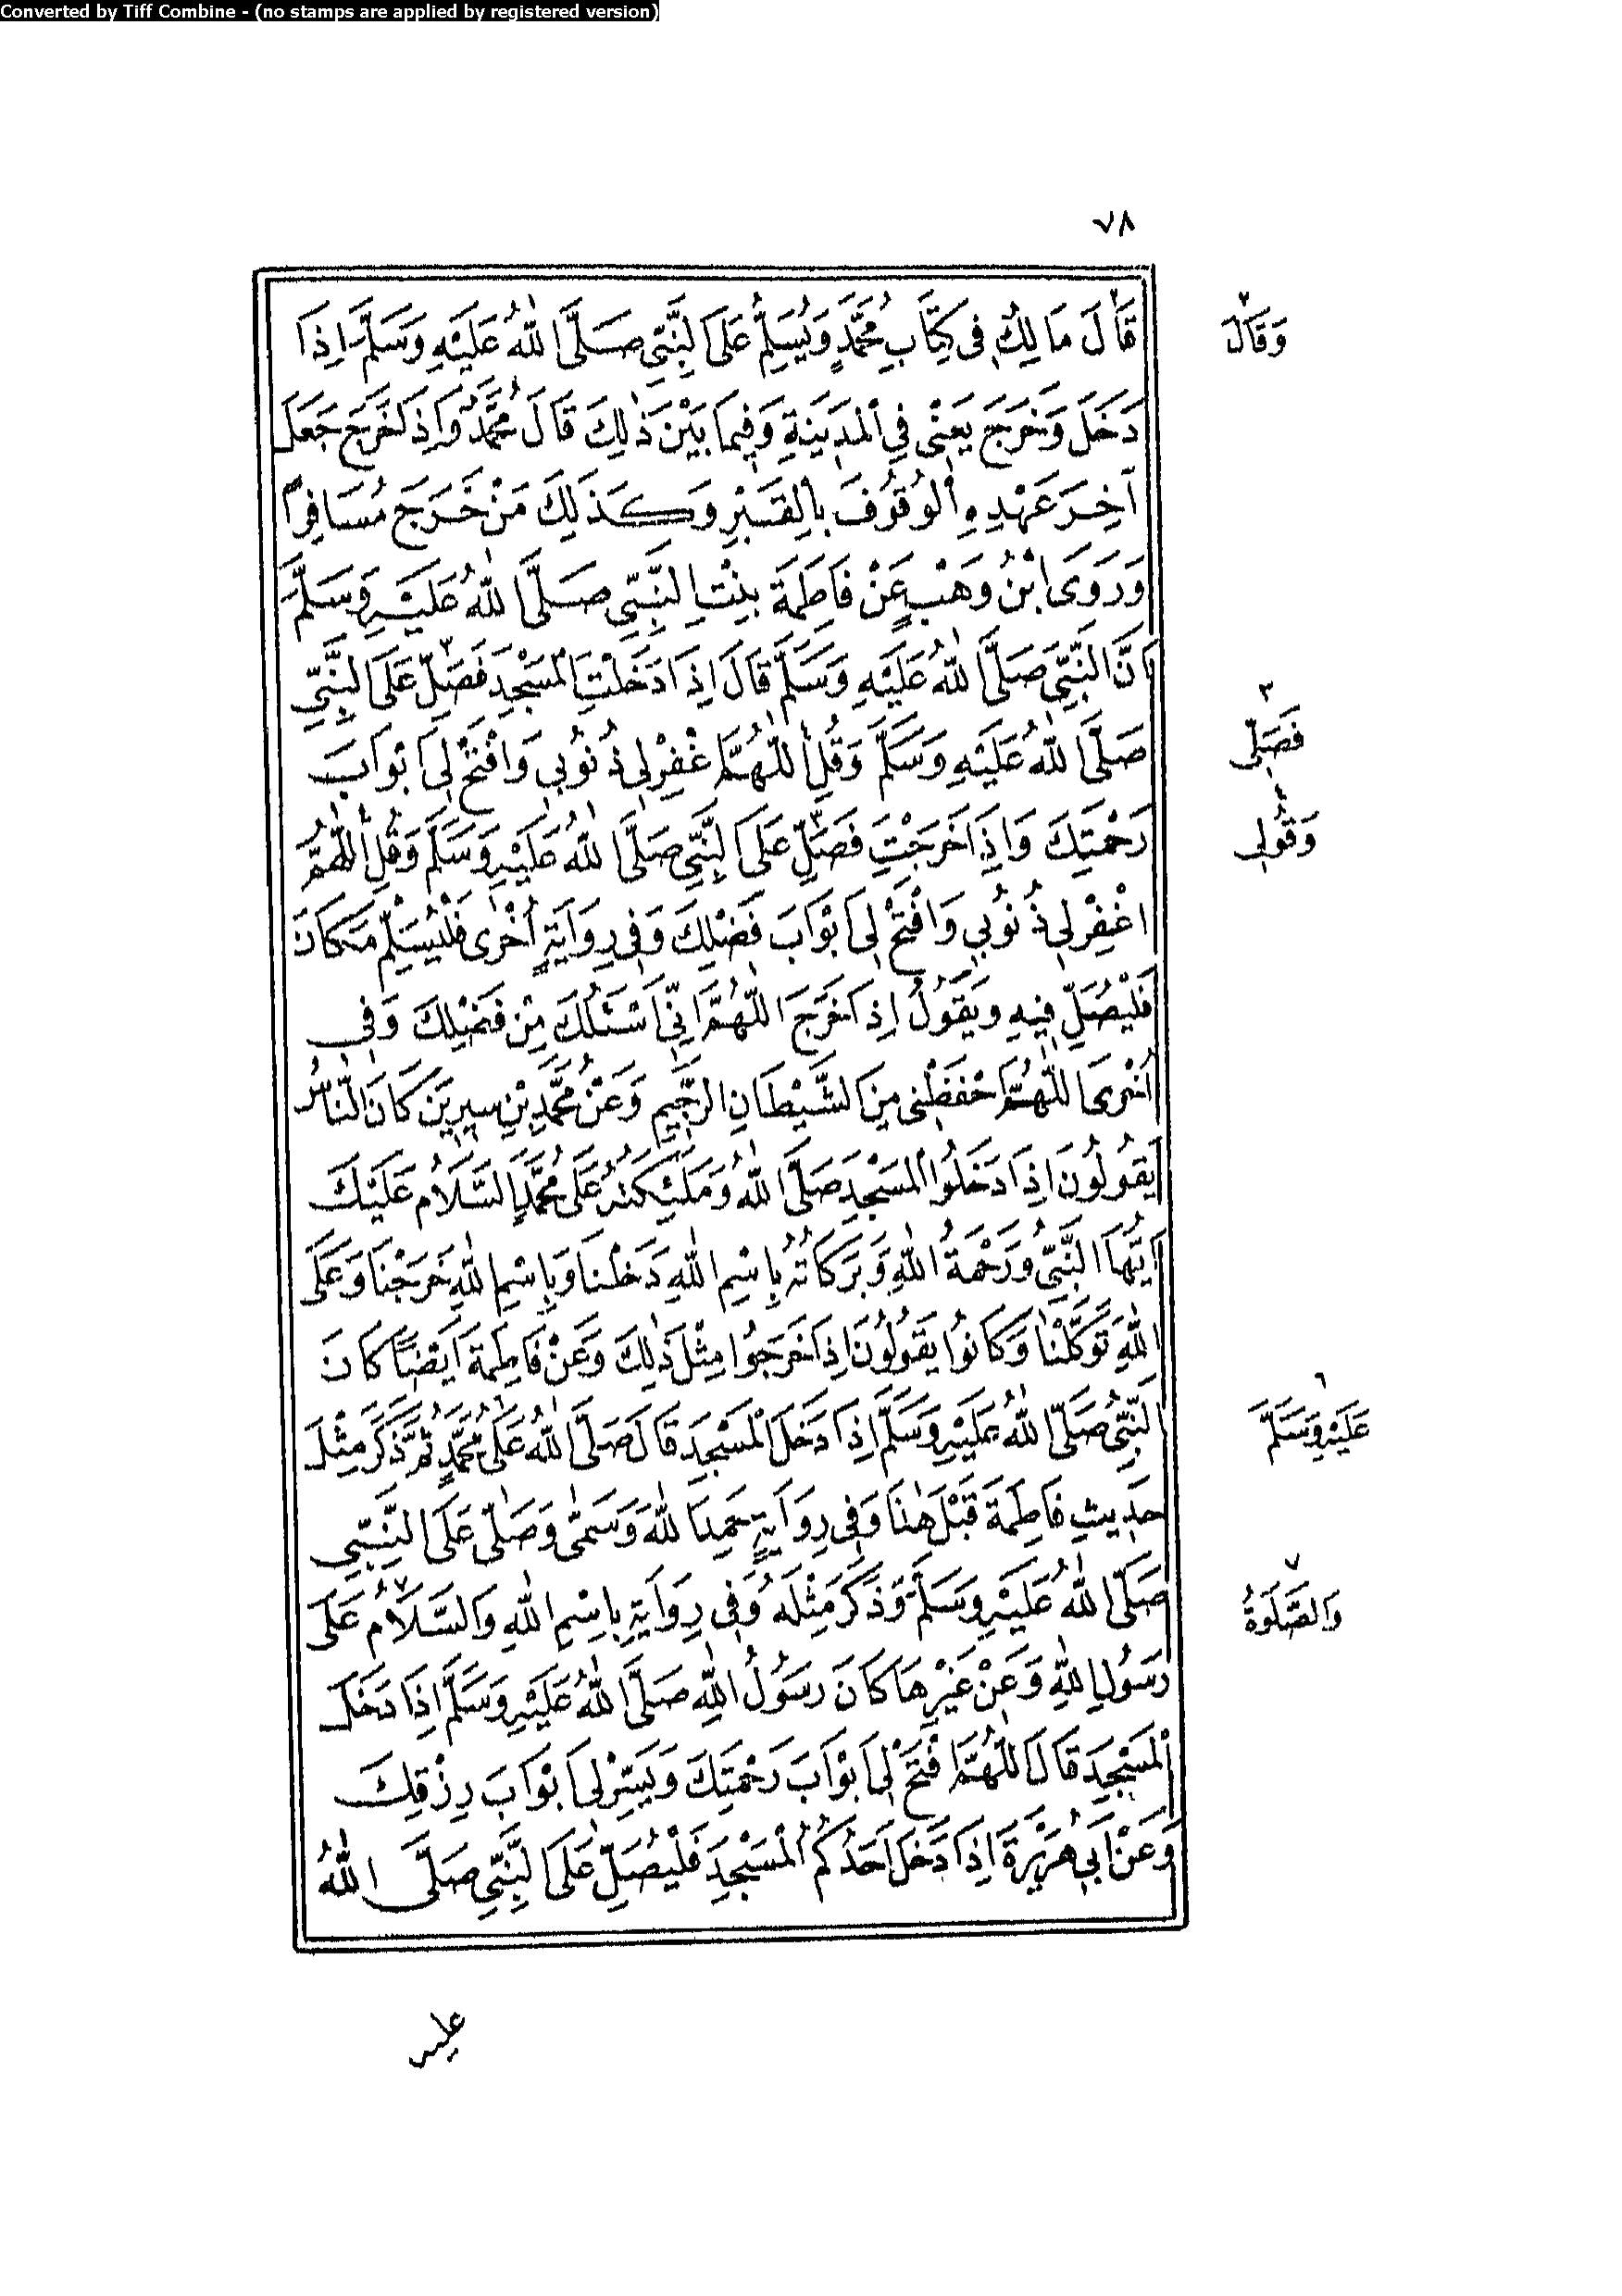 Converted by Tiff Combine - (no stamps are applied by registered version)
٧٨
قَالَ مَالِكٌ فِى كِتَابِ مُحَمَّدٍ وَيُسَلِّمُ عَلَى النَّبِىِّ صَلَّى اللّٰهُ عَلَيْهِ وَسَلَّمَ اِذَا
وَقَالَ
دَخَلَ وَخَرَجَ يَعْنِى فِى الْمَدِينَةِ وَفِيمَا بَيْنَ ذٰلِكَ قَالَ مُحَمَّدٌ وَاِذَا خَرَجَ جَعَلَ
اٰخِرَ عَهْدِهِ الْوُقُوفَ بِالْقَبْرِ وَكَذٰلِكَ مَنْ خَرَجَ مُسَافِرًا
وَرَوَى ابْنُ وَهْبٍ عَنْ فَاطِمَةَ بِنْتِ النَّبِىِّ صَلَّى اللّٰهُ عَلَيْهِ وَسَلَّمَ
اَنَّ النَّبِىَّ صَلَّى اللّٰهُ عَلَيْهِ وَسَلَّمَ قَالَ اِذَا دَخَلْتِ الْمَسْجِدَ فَصَلِّ عَلَى النَّبِىِّ
٣
فَصَلِّى
صَلَّى اللّٰهُ عَلَيْهِ وَسَلَّمَ وَقُلِ اللّٰهُمَّ اغْفِرْ لِى ذُنُوبِى وَافْتَحْ لِى اَبْوَابَ
٤
وَقُولِى
رَحْمَتِكَ وَاِذَا خَرَجْتِ فَصَلِّ عَلَى النَّبِىِّ صَلَّى اللّٰهُ عَلَيْهِ وَسَلَّمَ وَقُلِ اللّٰهُمَّ
اغْفِرْ لِى ذُنُوبِى وَافْتَحْ لِى اَبْوَابَ فَضْلِكَ وَفِى رِوَايَةٍ اُخْرٰى فَلْيُسَلِّمْ مَكَانَ
فَلْيُصَلِّ فِيهِ وَيَقُولُ اِذَا خَرَجَ اللّٰهُمَّ اِنِّى اَسْئَلُكَ مِنْ فَضْلِكَ وَفِى
اُخْرَى اللّٰهُمَّ احْفَظْنِى مِنَ الشَّيْطَانِ الرَّجِيمِ وَعَنْ مُحَمَّدِ بْنِ سِيرِينَ كَانَ النَّاسُ
يَقُولُونَ اِذَا دَخَلُوا الْمَسْجِدَ صَلَّى اللّٰهُ وَمَلٰئِكَتُهُ عَلَى مُحَمَّدٍ السَّلَامُ عَلَيْكَ
اَيُّهَا النَّبِىُّ وَرَحْمَةُ اللّٰهِ وَبَرَكَاتُهُ بِاسْمِ اللّٰهِ دَخَلْنَا وَبِاسْمِ اللّٰهِ خَرَجْنَا وَعَلَى
اللّٰهِ تَوَكَّلْنَا وَكَانُوا يَقُولُونَ اِذَا خَرَجُوا مِثْلَ ذٰلِكَ وَعَنْ فَاطِمَةَ اَيْضًا كَانَ
النَّبِىُّ صَلَّى اللّٰهُ عَلَيْهِ وَسَلَّمَ اِذَا دَخَلَ الْمَسْجِدَ قَالَ صَلَّى اللّٰهُ عَلَى مُحَمَّدٍ ثُمَّ ذَكَرَ مِثْلَ
٦
عَلَيْهِ وَسَلَّمَ
حَدِيثِ فَاطِمَةَ قَبْلَ هٰذَا وَفِى رِوَايَةٍ حَمِدَ اللّٰهَ وَسَمّٰى وَصَلّٰى عَلَى النَّبِىِّ
صَلَّى اللّٰهُ عَلَيْهِ وَسَلَّمَ وَذَكَرَ مِثْلَهُ وَفِى رِوَايَةٍ بِاسْمِ اللّٰهِ وَالسَّلَامُ عَلَى
٧
وَالصَّلٰوةُ
رَسُولِ اللّٰهِ وَعَنْ غَيْرِهَا كَانَ رَسُولُ اللّٰهِ صَلَّى اللّٰهُ عَلَيْهِ وَسَلَّمَ اِذَا دَخَلَ
الْمَسْجِدَ قَالَ اللّٰهُمَّ افْتَحْ لِى اَبْوَابَ رَحْمَتِكَ وَيَسِّرْ لِى اَبْوَابَ رِزْقِكَ
وَعَنْ اَبِى هُرَيْرَةَ اِذَا دَخَلَ اَحَدُكُمُ الْمَسْجِدَ فَلْيُصَلِّ عَلَى النَّبِىِّ صَلَّى اللّٰهُ
عليه